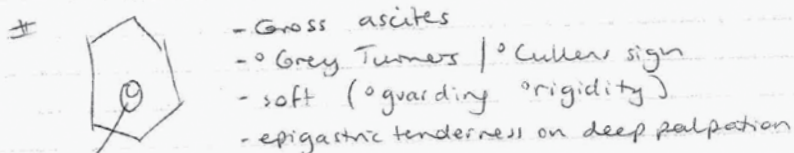 - Gross ascites
- ° Grey Turners | ° Cullens sign
- soft (°guarding °rigidity)
- epigastric tenderness on deep palpation